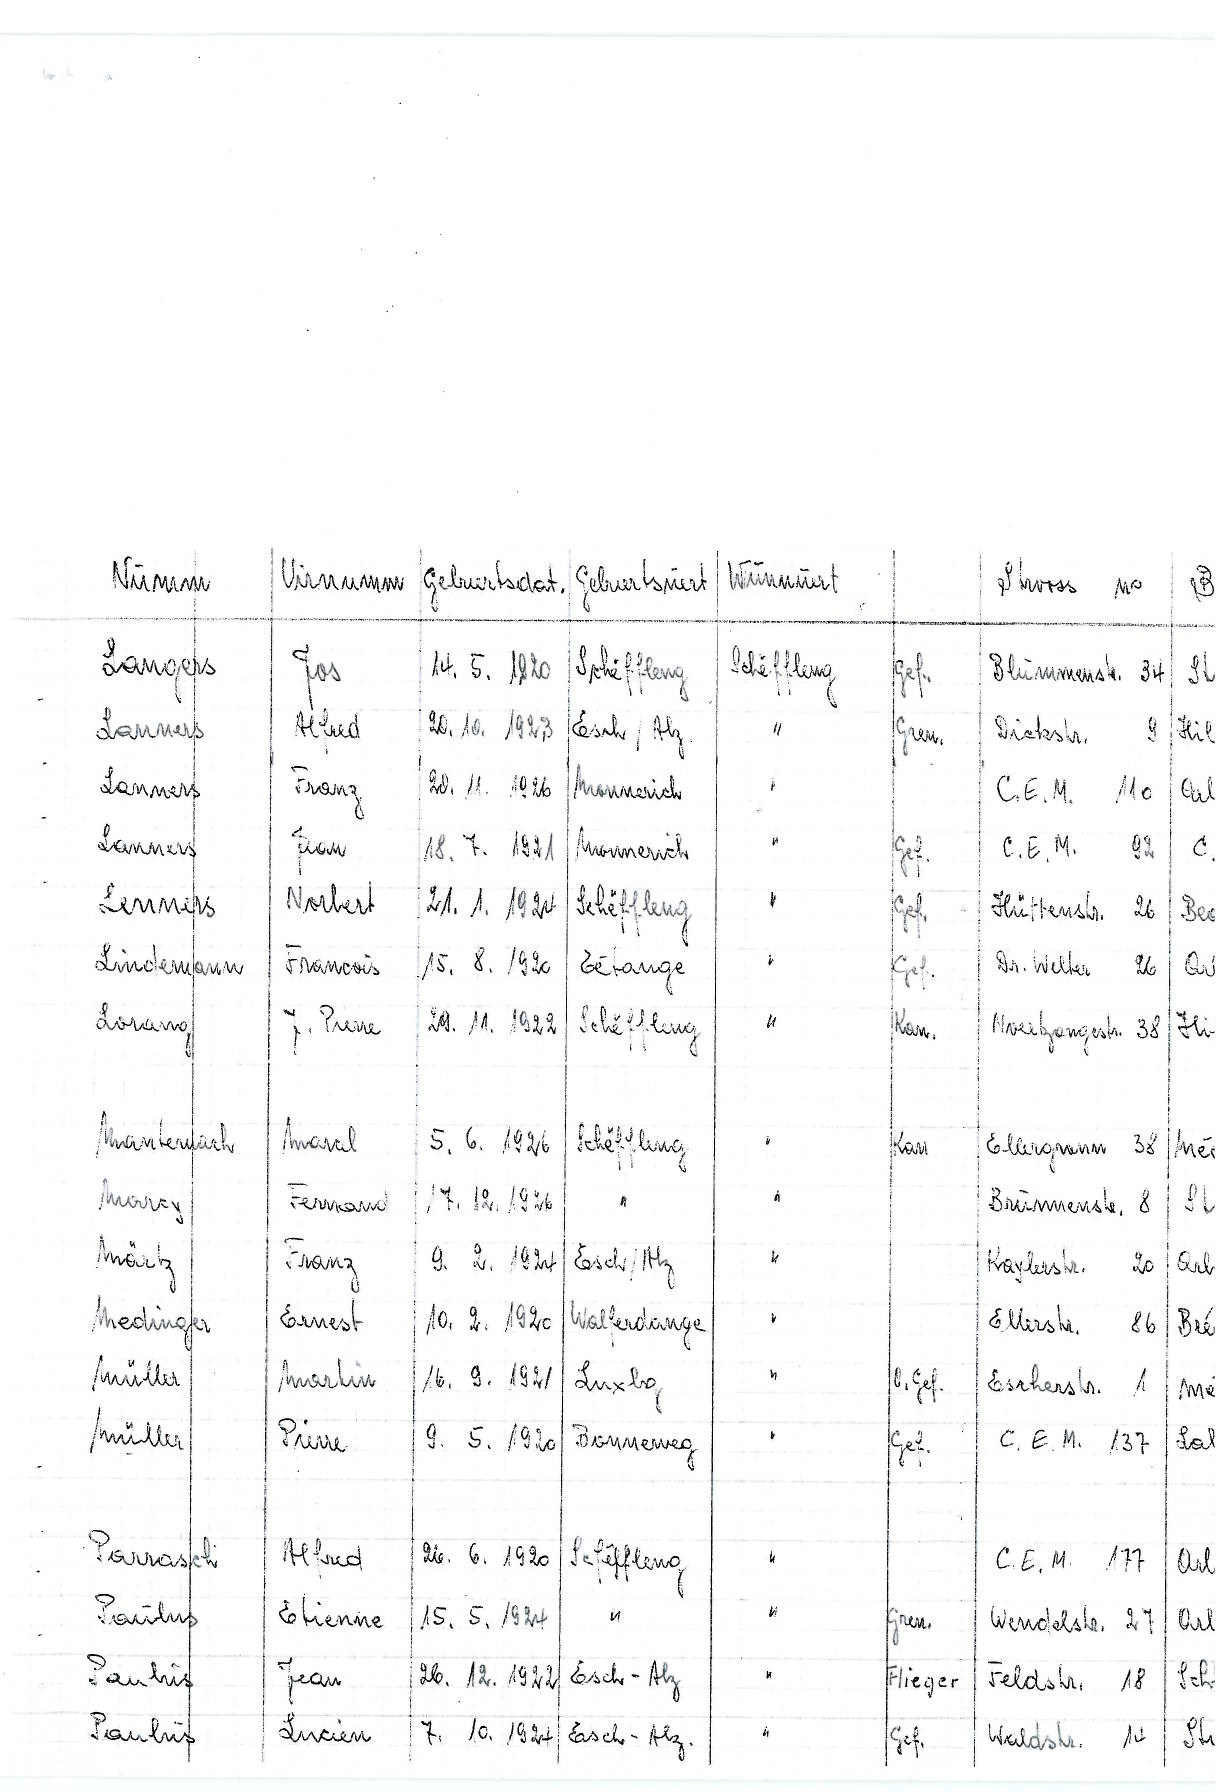 Numm Virnumm Geburtsdat. Geburtsuert Wunnuert Strooss no B
Langers Jos 14. 5. 1920 Schëffleng Schëffleng Gef. Blummenstr. 34 St
Lanners Alfred 20. 10. 1923 Esch/Alz. " Gren. Dickstr. 9 Hil
Lanners Franz 20. 11. 1926 Monnerich " C.E.M. 110 Arb
Lanners Jean 18. 7. 1921 Monnerich " Gef. C.E.M. 92 C.
Lenners Norbert 21. 1. 1924 Schëffleng " Gef. Hüttenstr. 26 Bea
Lindemann Francois 15. 8. 1920 Tétange " Gef. Dr. Welter 26 Ar
Lorang J. Pierre 29. 11. 1922 Schëffleng " Kan. Noertzangestr. 38 Hi
Manternach Marcel 5. 6. 1926 Schëffleng " Kan Ellergronn 38 Méc
Marcy Fernand 17. 12. 1926 " " Brunnenstr. 8 St
Märtz Franz 9. 2. 1924 Esch/Alz " Kaylerstr. 20 Arb
Medinger Ernest 10. 2. 1920 Walferdange " Ellerstr. 86 Bré
Müller Martin 16. 9. 1921 Luxbg " O.Gef. Escherstr. 1 Mé
Müller Pierre 9. 5. 1920 Bonneweg " Gef. C.E.M. 137 Lab
Parrasch Alfred 26. 6. 1920 Schëffleng " C.E.M. 177 Arb
Paulus Etienne 15. 5. 1924 " " Gren. Wendelstr. 27 Arb
Paulus Jean 26. 12. 1922 Esch-Alz " Flieger Feldstr. 18 Sch
Paulus Lucien 7. 10. 1924 Esch-Alz. " Gef. Waldstr. 14 Str